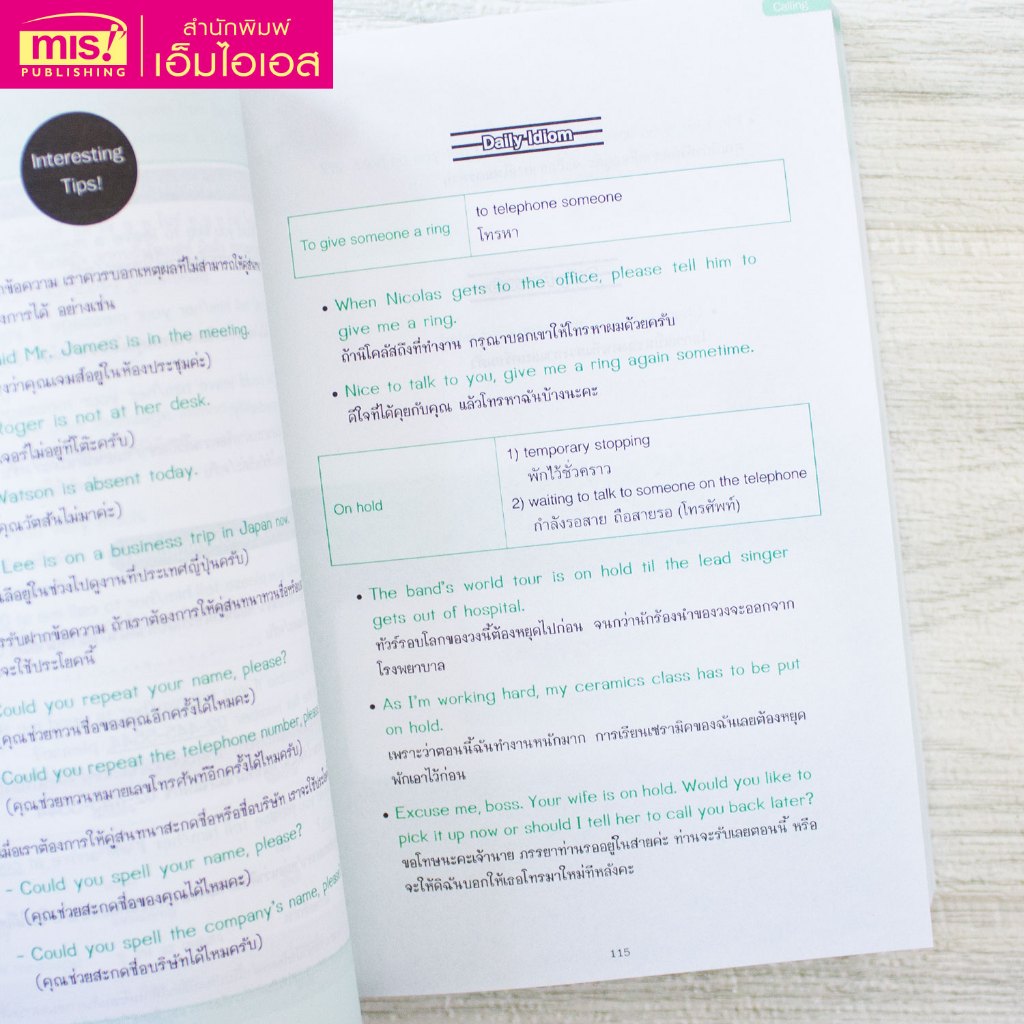 mis!
PUBLISHING
สำนักพิมพ์
เอ็มไอเอส
Interesting
Tips!
ข้อความ เราควรบอกเหตุผลที่ไม่สามารถให้
งการได้ อย่างเช่น
Mr. James is in the meeting.
ว่าคุณเจมส์อยู่ในห้องประชุมค่ะ)
Roger is not at her desk.
เจอร์ไม่อยู่ที่โต๊ะครับ)
Watson is absent today.
คุณวัตสันไม่มาค่ะ)
Lee is on a business trip in Japan now.
ลีอยู่ในช่วงไปดูงานที่ประเทศญี่ปุ่นครับ)
รรับฝากข้อความ ถ้าเราต้องการให้คู่สนทนาทวนชื่อ
จะใช้ประโยคนี้
Could you repeat your name, please?
(คุณช่วยทวนชื่อของคุณอีกครั้งได้ไหมคะ)
Could you repeat the telephone number, please
(คุณช่วยทวนหมายเลขโทรศัพท์อีกครั้งได้ไหมครับ)
เมื่อเราต้องการให้คู่สนทนาสะกดชื่อหรือชื่อบริษัท เราจะใช้
- Could you spell your name, please?
(คุณช่วยสะกดชื่อของคุณได้ไหมคะ)
- Could you spell the company's name, please
(คุณช่วยสะกดชื่อบริษัทได้ไหมครับ)
Calling
Daily Idiom
To give someone a ring
to telephone someone
โทรหา
• When Nicolas gets to the office, please tell him to
give me a ring.
ถ้านิโคลัสถึงที่ทำงาน กรุณาบอกเขาให้โทรหาผมด้วยครับ
• Nice to talk to you, give me a ring again sometime.
ดีใจที่ได้คุยกับคุณ แล้วโทรหาฉันบ้างนะคะ
On hold
1) temporary stopping
พักไว้ชั่วคราว
2) waiting to talk to someone on the telephone
กำลังรอสาย ถือสายรอ (โทรศัพท์)
• The band's world tour is on hold til the lead singer
gets out of hospital.
ทัวร์รอบโลกของวงนี้ต้องหยุดไปก่อน จนกว่านักร้องนำของวงจะออกจาก
โรงพยาบาล
• As I'm working hard, my ceramics class has to be put
on hold.
เพราะว่าตอนนี้ฉันทำงานหนักมาก การเรียนเซรามิคของฉันเลยต้องหยุด
พักเอาไว้ก่อน
• Excuse me, boss. Your wife is on hold. Would you like to
pick it up now or should I tell her to call you back later?
ขอโทษนะคะเจ้านาย ภรรยาท่านรออยู่ในสายค่ะ ท่านจะรับเลยตอนนี้ หรือ
จะให้ดิฉันบอกให้เธอโทรมาใหม่ทีหลังคะ
115